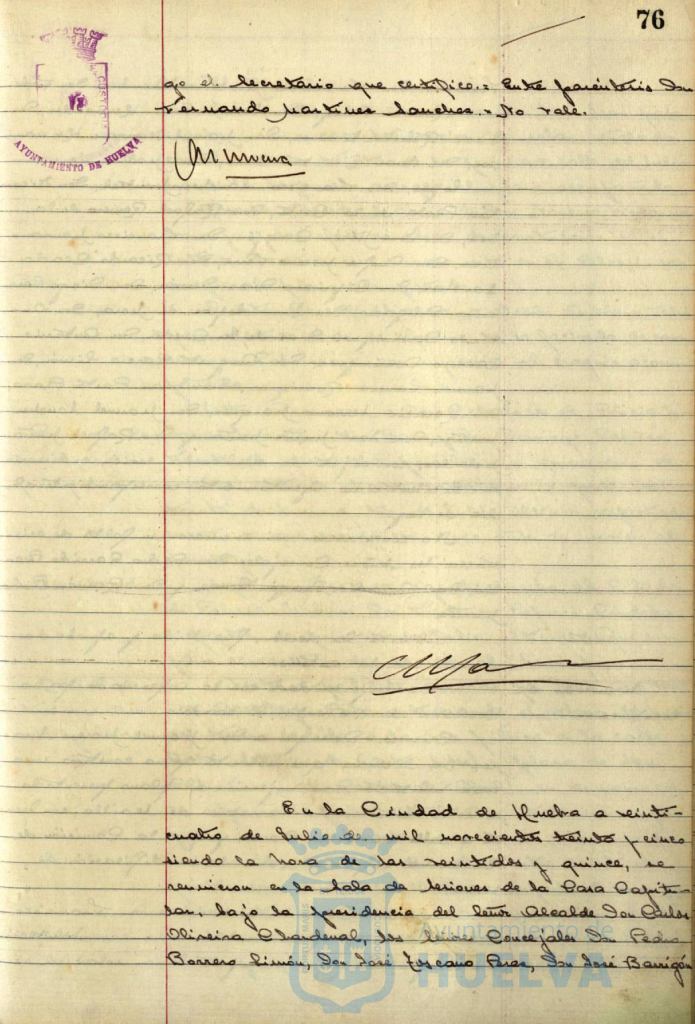 76
CUSTODIA
AYUNTAMIENTO DE HUELVA
go el Secretario que certifico.= Entre paréntesis Don
Fernando Martinez Sanchez.= No vale.
En la Ciudad de Huelva a veinti-
cuatro de Julio de mil novecientos treinta y cinco
siendo la hora de las veintidos y quince, se
reunieron en la Sala de Sesiones de la Casa Capitu-
lar, bajo la presidencia del Señor Alcalde Don Carlos
Oliveira Chardenal, los Señores Concejales Don Pedro
Borrero Limón, Don José Toscano Perez, Don José Barrigón
Ayuntamiento de
HUELVA